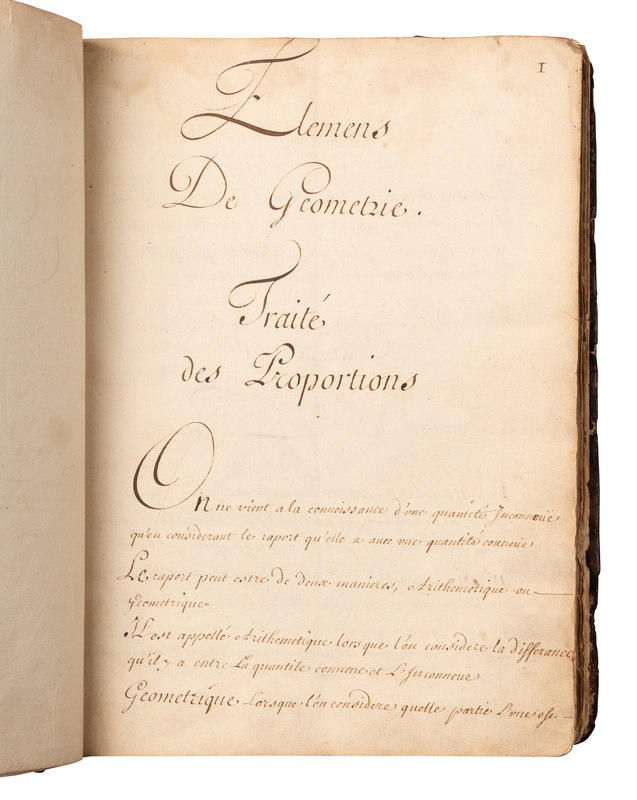 1
Elemens
De Geometrie.
Traité
des Proportions
On ne vient a la connoissance d'vne quantité Jnconneüe
qu'en considerant le raport qu'elle a avec vne quantité connoüe
Le raport peut estre de deux manieres, Arithemetique ou
Geometrique
Jl est appellé Arithemetique lors que l'on considere la differance
qu'il y a entre La quantite connoue et L'Jnconnoüe
Geometrique Lorsque l'on considere quelle partie L'vne est